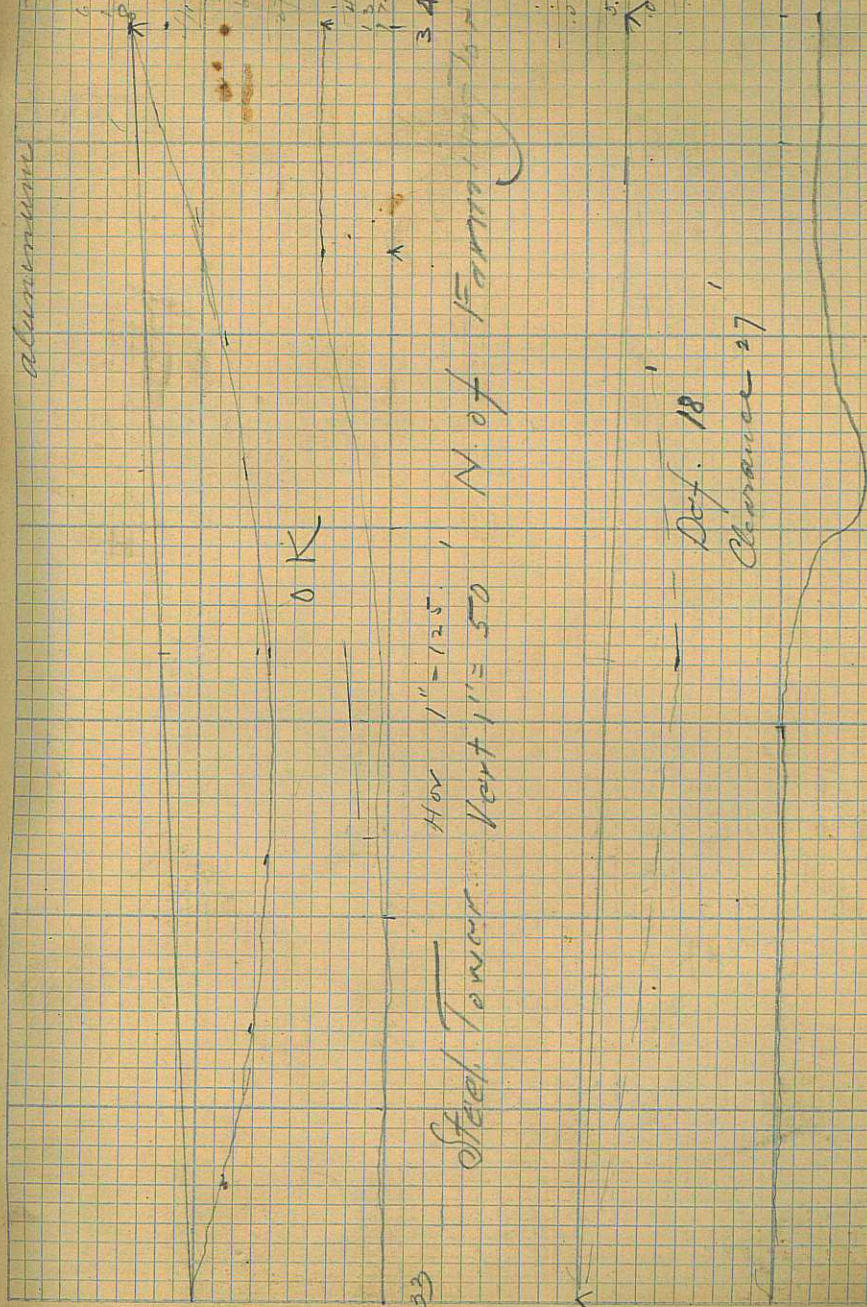 aluminum
OK
33
34
Hor 1" = 125'
Steel Tower Vert 1" = 50' N. of
Def. 18'
Clearance 27'